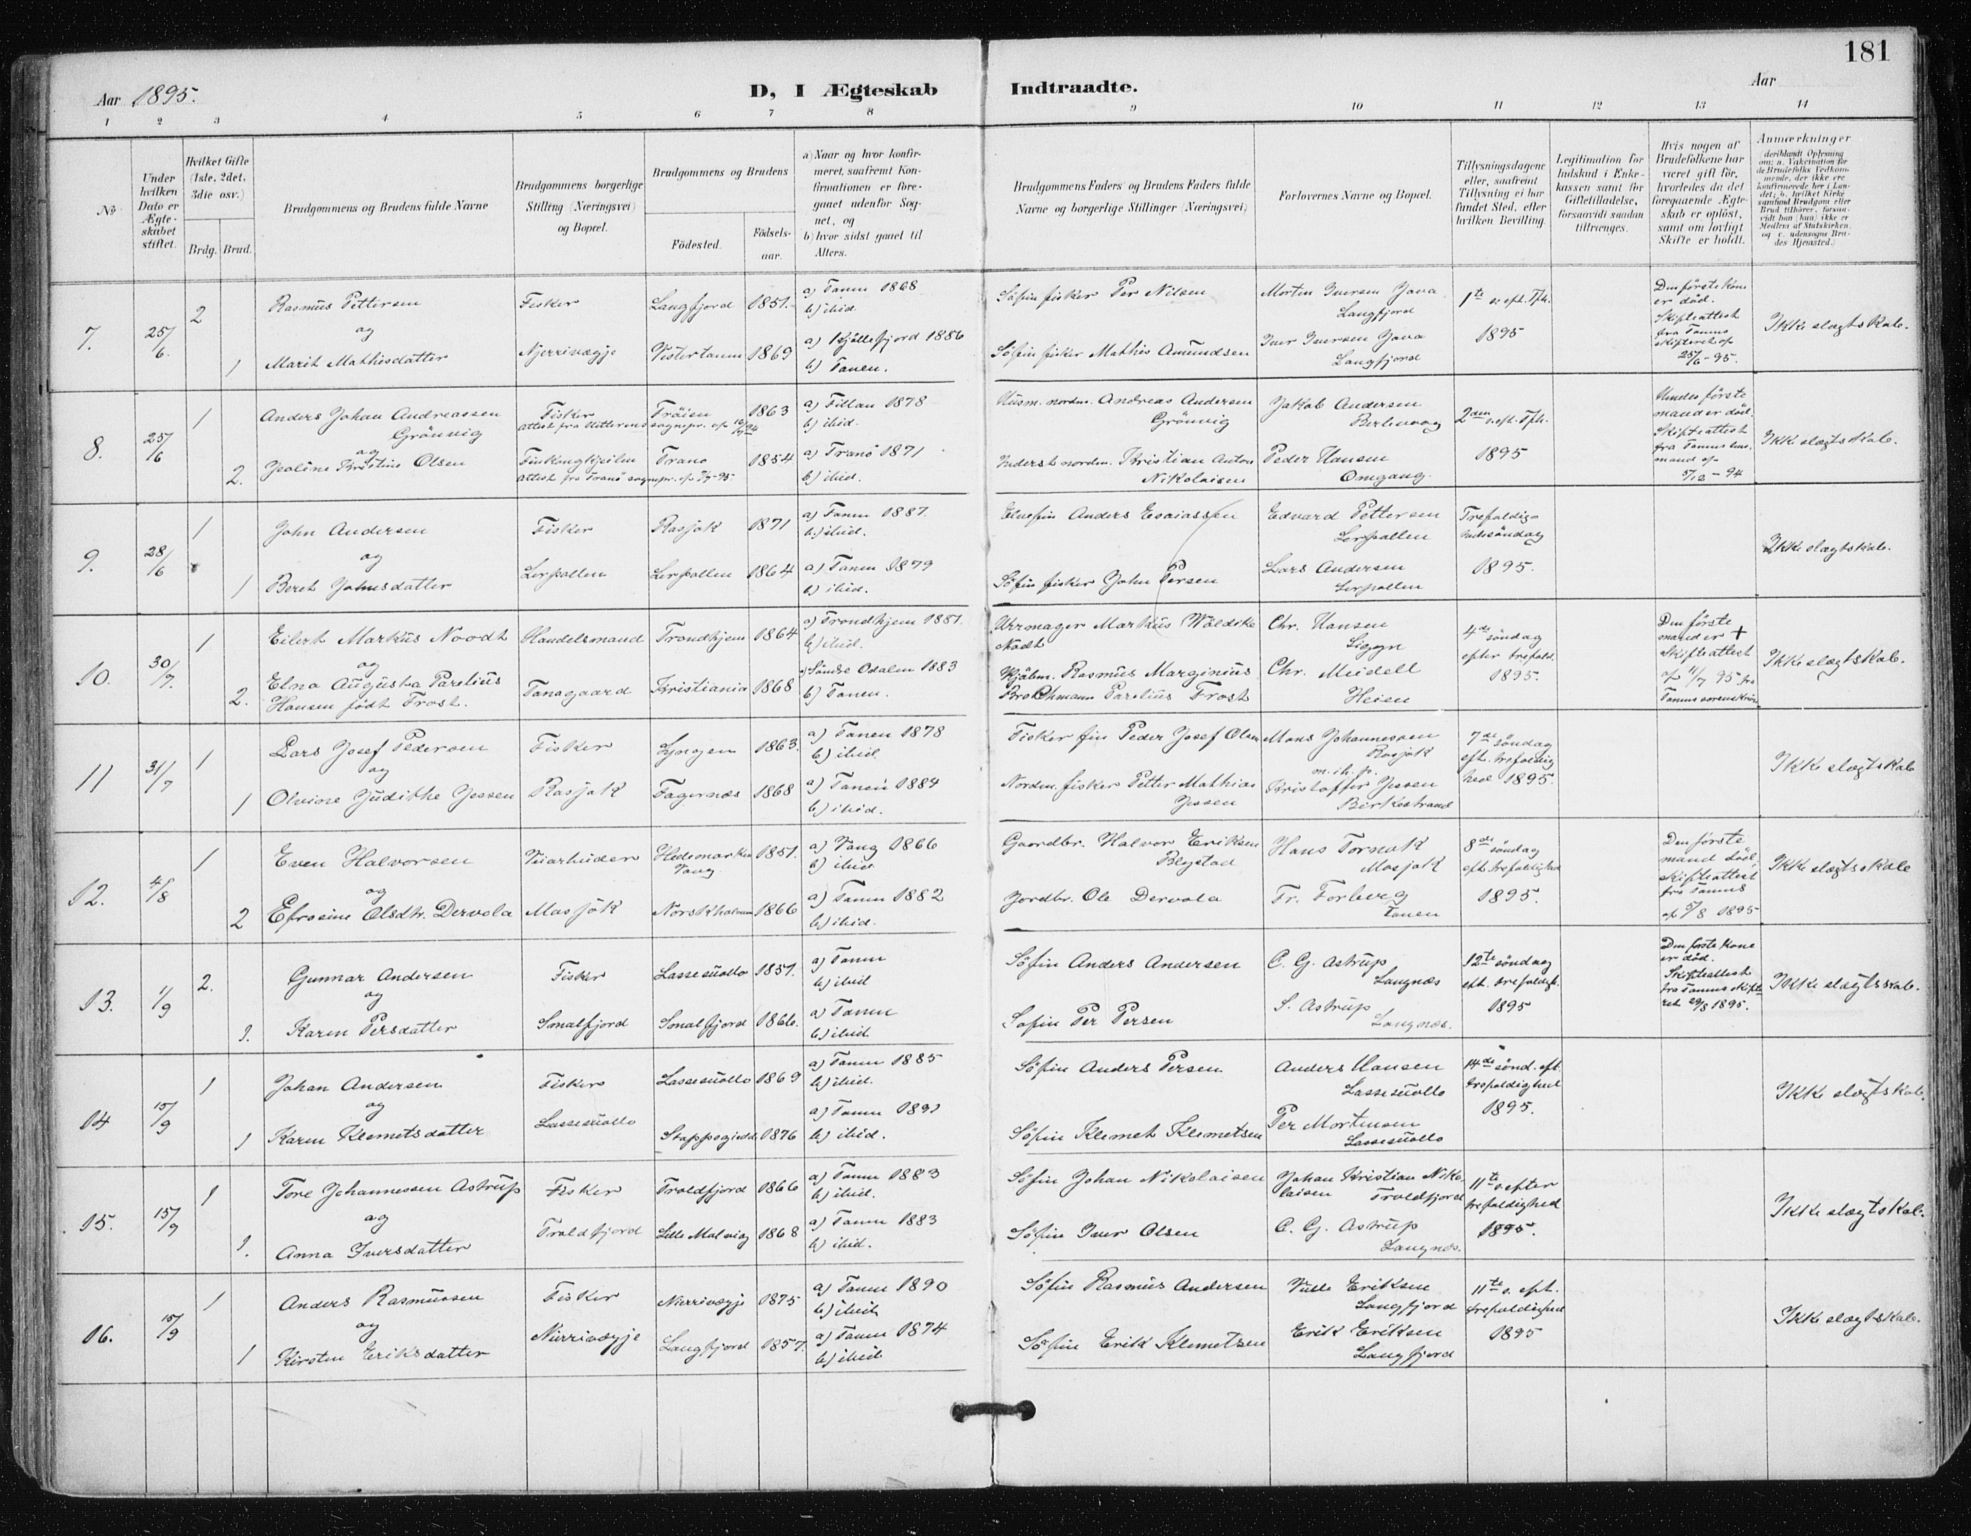 181
Aar 1895.
D, I Ægteskab Indtraadte.
Aar
1 2 3 4 5 6 7 8 9 10 11 12 13 14
No
Under hvilken Dato er Ægteskabet stiftet.
Hvilket Gifte (1ste, 2det, 3die osv.)
Brdg. Brud.
Brudgommens og Brudens fulde Navne
Brudgommens borgerlige Stilling (Næringsvei) og Bopæl.
Brudgommens og Brudens
Fødested.
Fødselsaar.
a) Naar og hvor konfirmeret, saafremt Konfirmationen er foregaaet udenfor Sognet, og
b) hvor sidst gaaet til Alters.
Brudgommens Faders og Brudens Faders fulde Navne og borgerlige Stillinger (Næringsvei)
Forlovernes Navne og Bopæl.
Tillysningsdagene eller, saafremt Tillysning ei har fundet Sted, efter hvilken Bevilling.
Legitimation for Indskud i Enkekassen samt for Giftetilladelse, forsaavidt saadan tiltrænges.
Hvis nogen af Brudefolkene har været gift før, hvorledes da det foregaaende Ægteskab er opløst, samt om lovligt Skifte er holdt.
Anmærkninger
7. 25/6. 2 Rasmus Pettersen Fisker Langfjord 1851. a) Tanen 1868 b) ibid. Søfin fisker Per Nilsen Morten Iversen Java Langfjord 1te s. eft. Tfh. 1895 Den første kone er død. Skifteattest fra Tanens skifteret af 25/6-95. Ikke slægtskab.
og
1 Marit Mathisdatter Njerrivægje Vestertanen 1869 a) Kjøllefjord 1886 b) Tanen. Søfin fisker Mathis Amundsen Iver Iversen Java Langfjord
8. 25/6 1 Anders Johan Andreassen Grönvig Fisker Fröien 1863 a) Fillan 1878 b) ibid. Husm. nordm. Andreas Andersen Grönvig Jakob Andersen Berlevaag 2den s. eft. Tfh. 1895 Hendes første mand er død. Skifteattest fra Tanens lensmand af 5/12-94 Ikke slægtskab.
og
2. Jeoline Kristine Olsen Finkongkjeilen Tranø 1854 a) Tranö 1871 b) ibid. Inderst nordm. Kristian Anton Nikolaisen Peder Hansen Omgang.
9. 28/6 1 John Andersen Fisker Rasjok 1871 a) Tanen 1887. b) ibid. Elvefin Anders Esaiassen Edvard Pettersen Lerpollen Trefoldighedssöndag 1895. Ikke slægtskab.
og
1 Beret Johnsdatter Lerpollen Lerpollen 1864 a) Tanen 1879 b) ibid. Söfin fisker John Persen Lars Andersen Lerpollen
10. 30/7. 1 Eilert Markus Noodt Handelsmand Trondhjem 1864 a) Trondhjem 1881. b) ibid. Urmager Markus Wöldike Nodt Chr. Hansen Siggn 4de söndag efter trefold. 1895. Den første mand er + Skifteattest af 11/7 95 fra Tanens sorenskriv. Ikke slægtskab.
og
2. Elna Augusta Parelius Hansen født Frost. Tanagaard Kristiania 1868 a) Söndre Odalen 1883 b) Tanen. Hjälm. Rasmus Marginius Brochmann Parelius Frost Chr. Meidell Heien
11 31/7 1 Lars Josef Pedersen Fisker Lyngen 1863. a) Tanen 1878 b) ibid Fisker fin Peder Josef Olsen Mons Johannessen Rasjok m. ih. p. 7de söndag eft. trefoldighed 1895. Ikke slægtskab
og
1 Olvine Judithe Jessen Rasjok Fagernæs 1868 a) Tanen 1884 b) ibid. Nordm. fisker Petter Mathias Jessen Kristoffer Jessen Birkestrand
12. 4/8 1 Even Halvorsen Veiarbeider Hedemarken Vang 1851. a) Vang 1866 b) ibid Gaardbr. Halvor Eriksen Blystad Hans Tornok Masjok 8de söndag eft. trefoldighed 1895. Den første mand död, skifteattest fra Tanens af 5/8 1895 Ikke slægtskab
og
2 Efrosine Olsdtr. Dervola Masjok Norskholmen 1866 a) Tanen 1882 b) ibid. Jordbr. Ole Dervola Fr. Forberg Tanen
13. 1/9 2. Gunnar Andersen Fisker Lassesuollo 1851. a) Tanen b) ibid Söfin Anders Andersen C. G. Astrup Langnæs 12te söndag eft. trefoldigh. 1895 Den første kone er død. Skifteattest fra Tanens skifteret 29/8 1895. Ikke slægtsskab.
og
1. Karen Persdatter Smalfjord Smalfjord 1866. a) Tanen b) ibid Søfin Per Persen S. Astrup Langnæs.
14 15/9 1 Johan Andersen Fisker Lassesuollo 1869 a) Tanen 1885 b) ibid. Söfin Anders Persen Anders Hansen Lassesuollo 14de sönd. eft. trefoldighed 1895. Ikke slægtskab.
og
1 Karen Klemetsdatter Lassesuollo Stappogiedde 1876 a) Tanen 1891 b) ibid. Söfin Klemet Klemetsen Per Mortensen Lassesuollo
15. 15/9 1 Tore Johannessen Astrup Fisker Troldfjord 1866 a) Tanen 1883 b) ibid. Söfin Johan Nikolaisen Johan Kristian Nikolaisen Troldfjord 11te s. efter trefoldighed 1895. Ikke slægtskab.
og
1. Anna Iversdatter Troldfjord Lille Molvig 1868 a) Tanen 1883 b) ibid. Söfin Iver Olsen C. G. Astrup Langnæs.
16. 15/9 1 Anders Rasmussen Fisker Nerrivægje 1875 a) Tanen 1890 b) ibid. Söfin Rasmus Andersen Nille Eriksen Langfjord 11te s. eft. trefoldighed 1895 Ikke slægtskab.
og
1 Kirsten Eriksdatter Nerrivægje Langfjord 1857. a) Tanen 1874 b) ibid Söfin Erik Klemetsen Erik Eriksen Langfjord